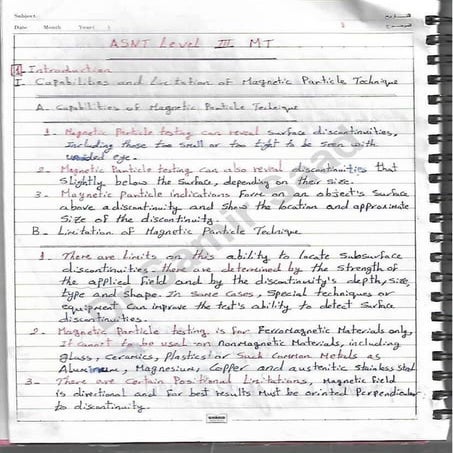 Subject:
Date Month Year( )
ASNT Level III MT
1- Introduction
I- Capabilities and Lictation of Magnetic Particle Technique
A- Capabilities of Magnetic Particle Technique
1- Magnetic Particle testing can reveal surface discontinuities,
Including those too small or too tight to be seen with
unaided eye.
2- Magnetic Particle testing can also reveal discontinuities that
slightly below the surface, depending on their size.
3- Magnetic Particle indications form on an object's surface
above a discontinuity and show the location and approximate
size of the discontinuity.
B- Limitation of Magnetic Particle Technique
1- There are limits on this ability to locate subsurface
discontinuities. these are determined by the strength of
the applied field and by the discontinuity's depth, size,
type and shape. In some cases, special techniques or
equipment can improve the test's ability to detect surface
discontinuities.
2- Magnetic Particle testing is for Ferromagnetic Materials only,
It cannot to be used on nonmagnetic Materials, including
glass, Ceramics, Plastics or Such Common Metals as
Aluminum, Magnesium, Copper and austenitic stainless steel
3- There are Certain Positional Limitations, Magnetic field
is directional and for best results Must be orinted Perpendicular
to discontinuity.